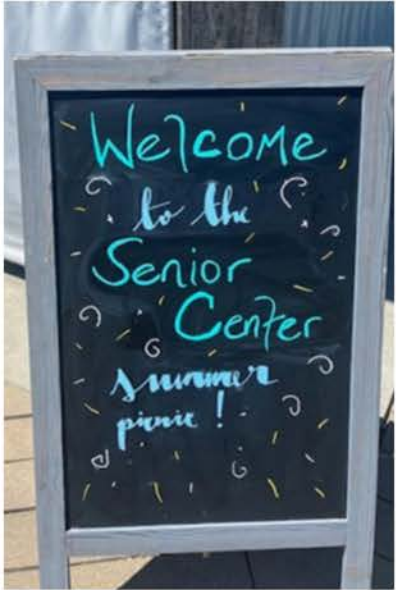 Welcome
to the
Senior
Center
summer
picnic!